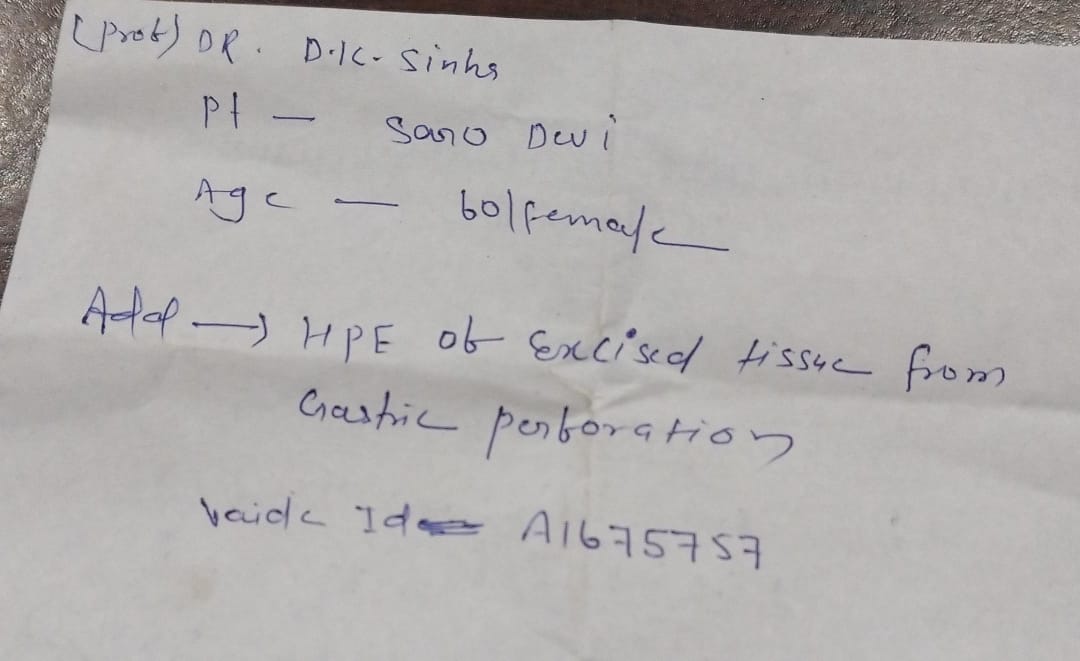 (Prof) DR. D.K. Sinha
Pt — Saro Devi
Age — 60/female
Add → HPE of Excised tissue from
Gastric perforation
Vaide Id A1675757